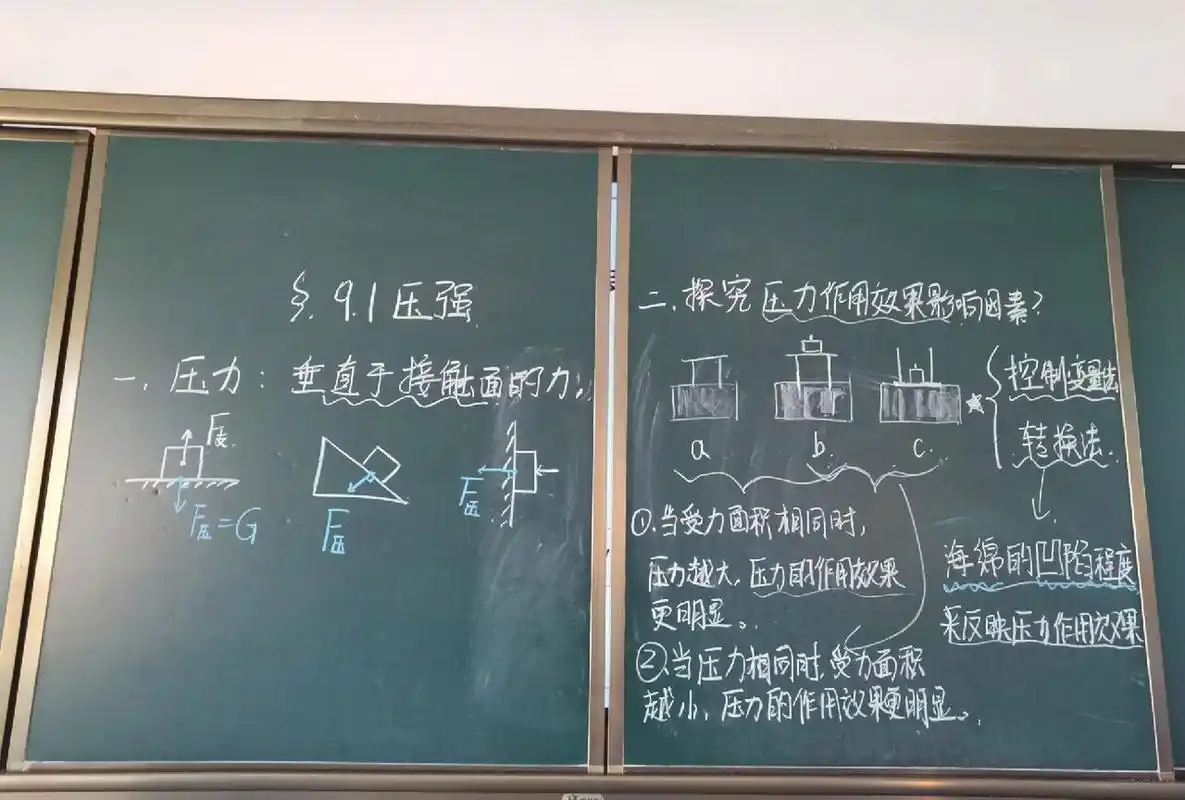 §.9.1压强
一、压力：垂直于接触面的力。
F支
F压=G
F压
F压
二、探究压力作用效果影响因素？
a b c
控制变量法
转换法
海绵的凹陷程度
来反映压力作用效果
①.当受力面积相同时，
压力越大，压力的作用效果
更明显。
②.当压力相同时，受力面积
越小，压力的作用效果更明显。